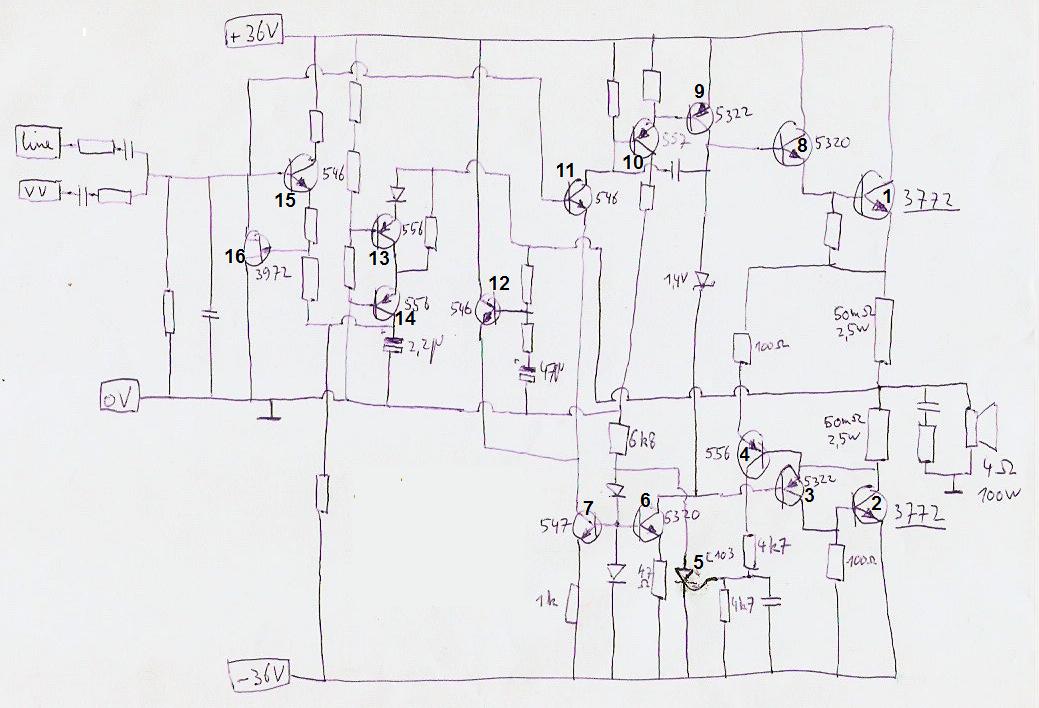 +36V
Line
VV
0V
-36V
15
546
16
3972
13
556
14
556
2,2µ
12
546
47µ
11
546
10
557
9
5322
8
5320
1
3772
1,4V
100Ω
50mΩ
2,5W
50mΩ
2,5W
4Ω
100W
6k8
556
4
5322
3
2
3772
7
547
6
5320
5
C103
4k7
47
Ω
1k
4k7
100Ω